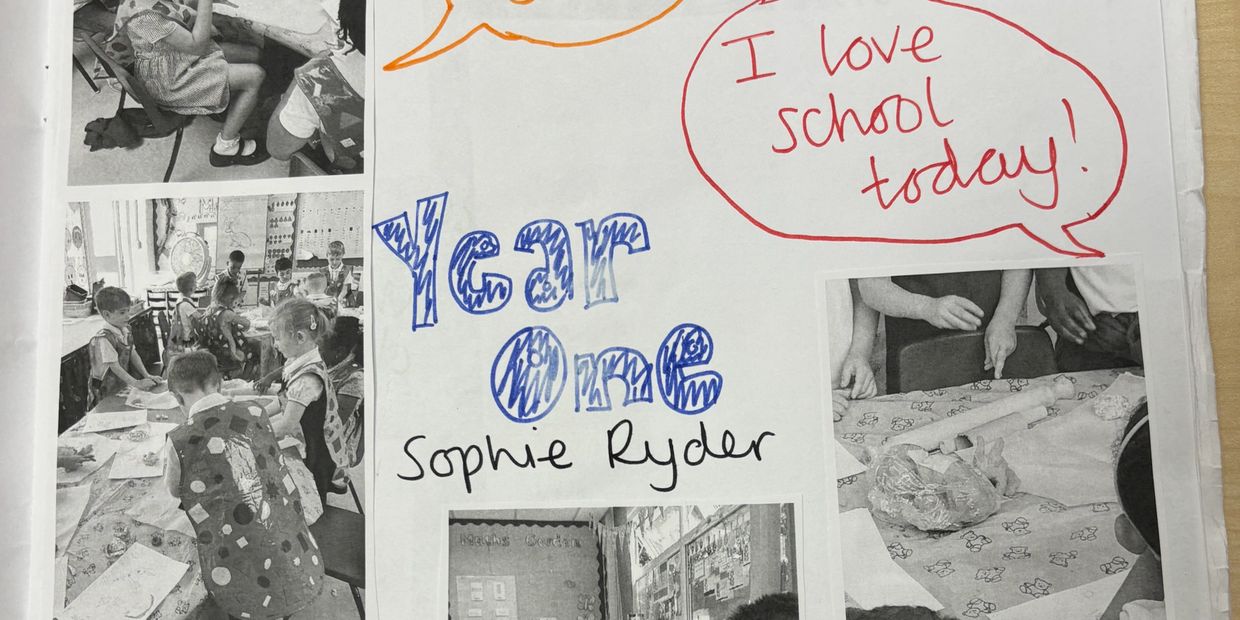 I love
school
today!
Year
One
Sophie Ryder
Maths Garden